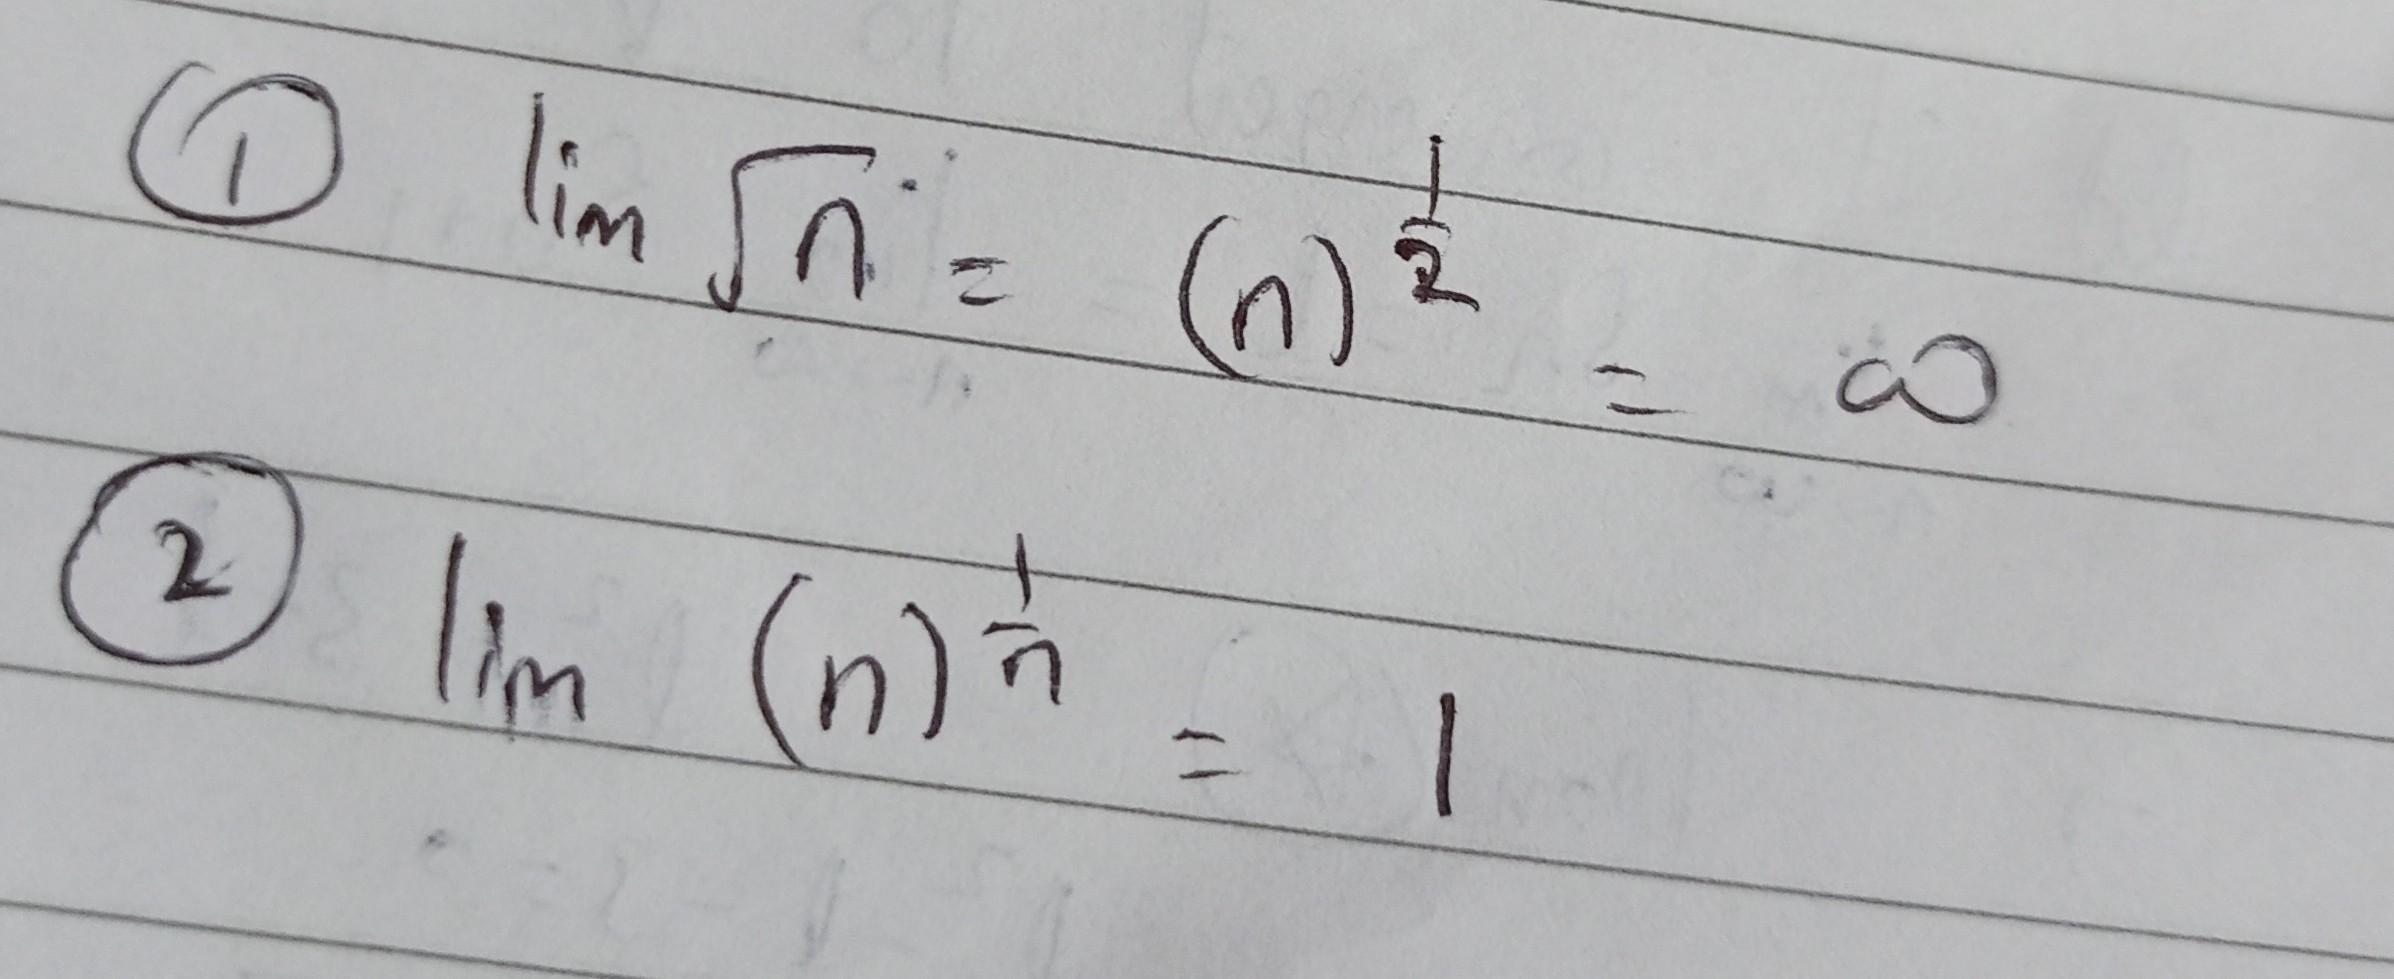 ① lim √n = (n)^(1/2) = ∞
② lim (n)^(1/n) = 1